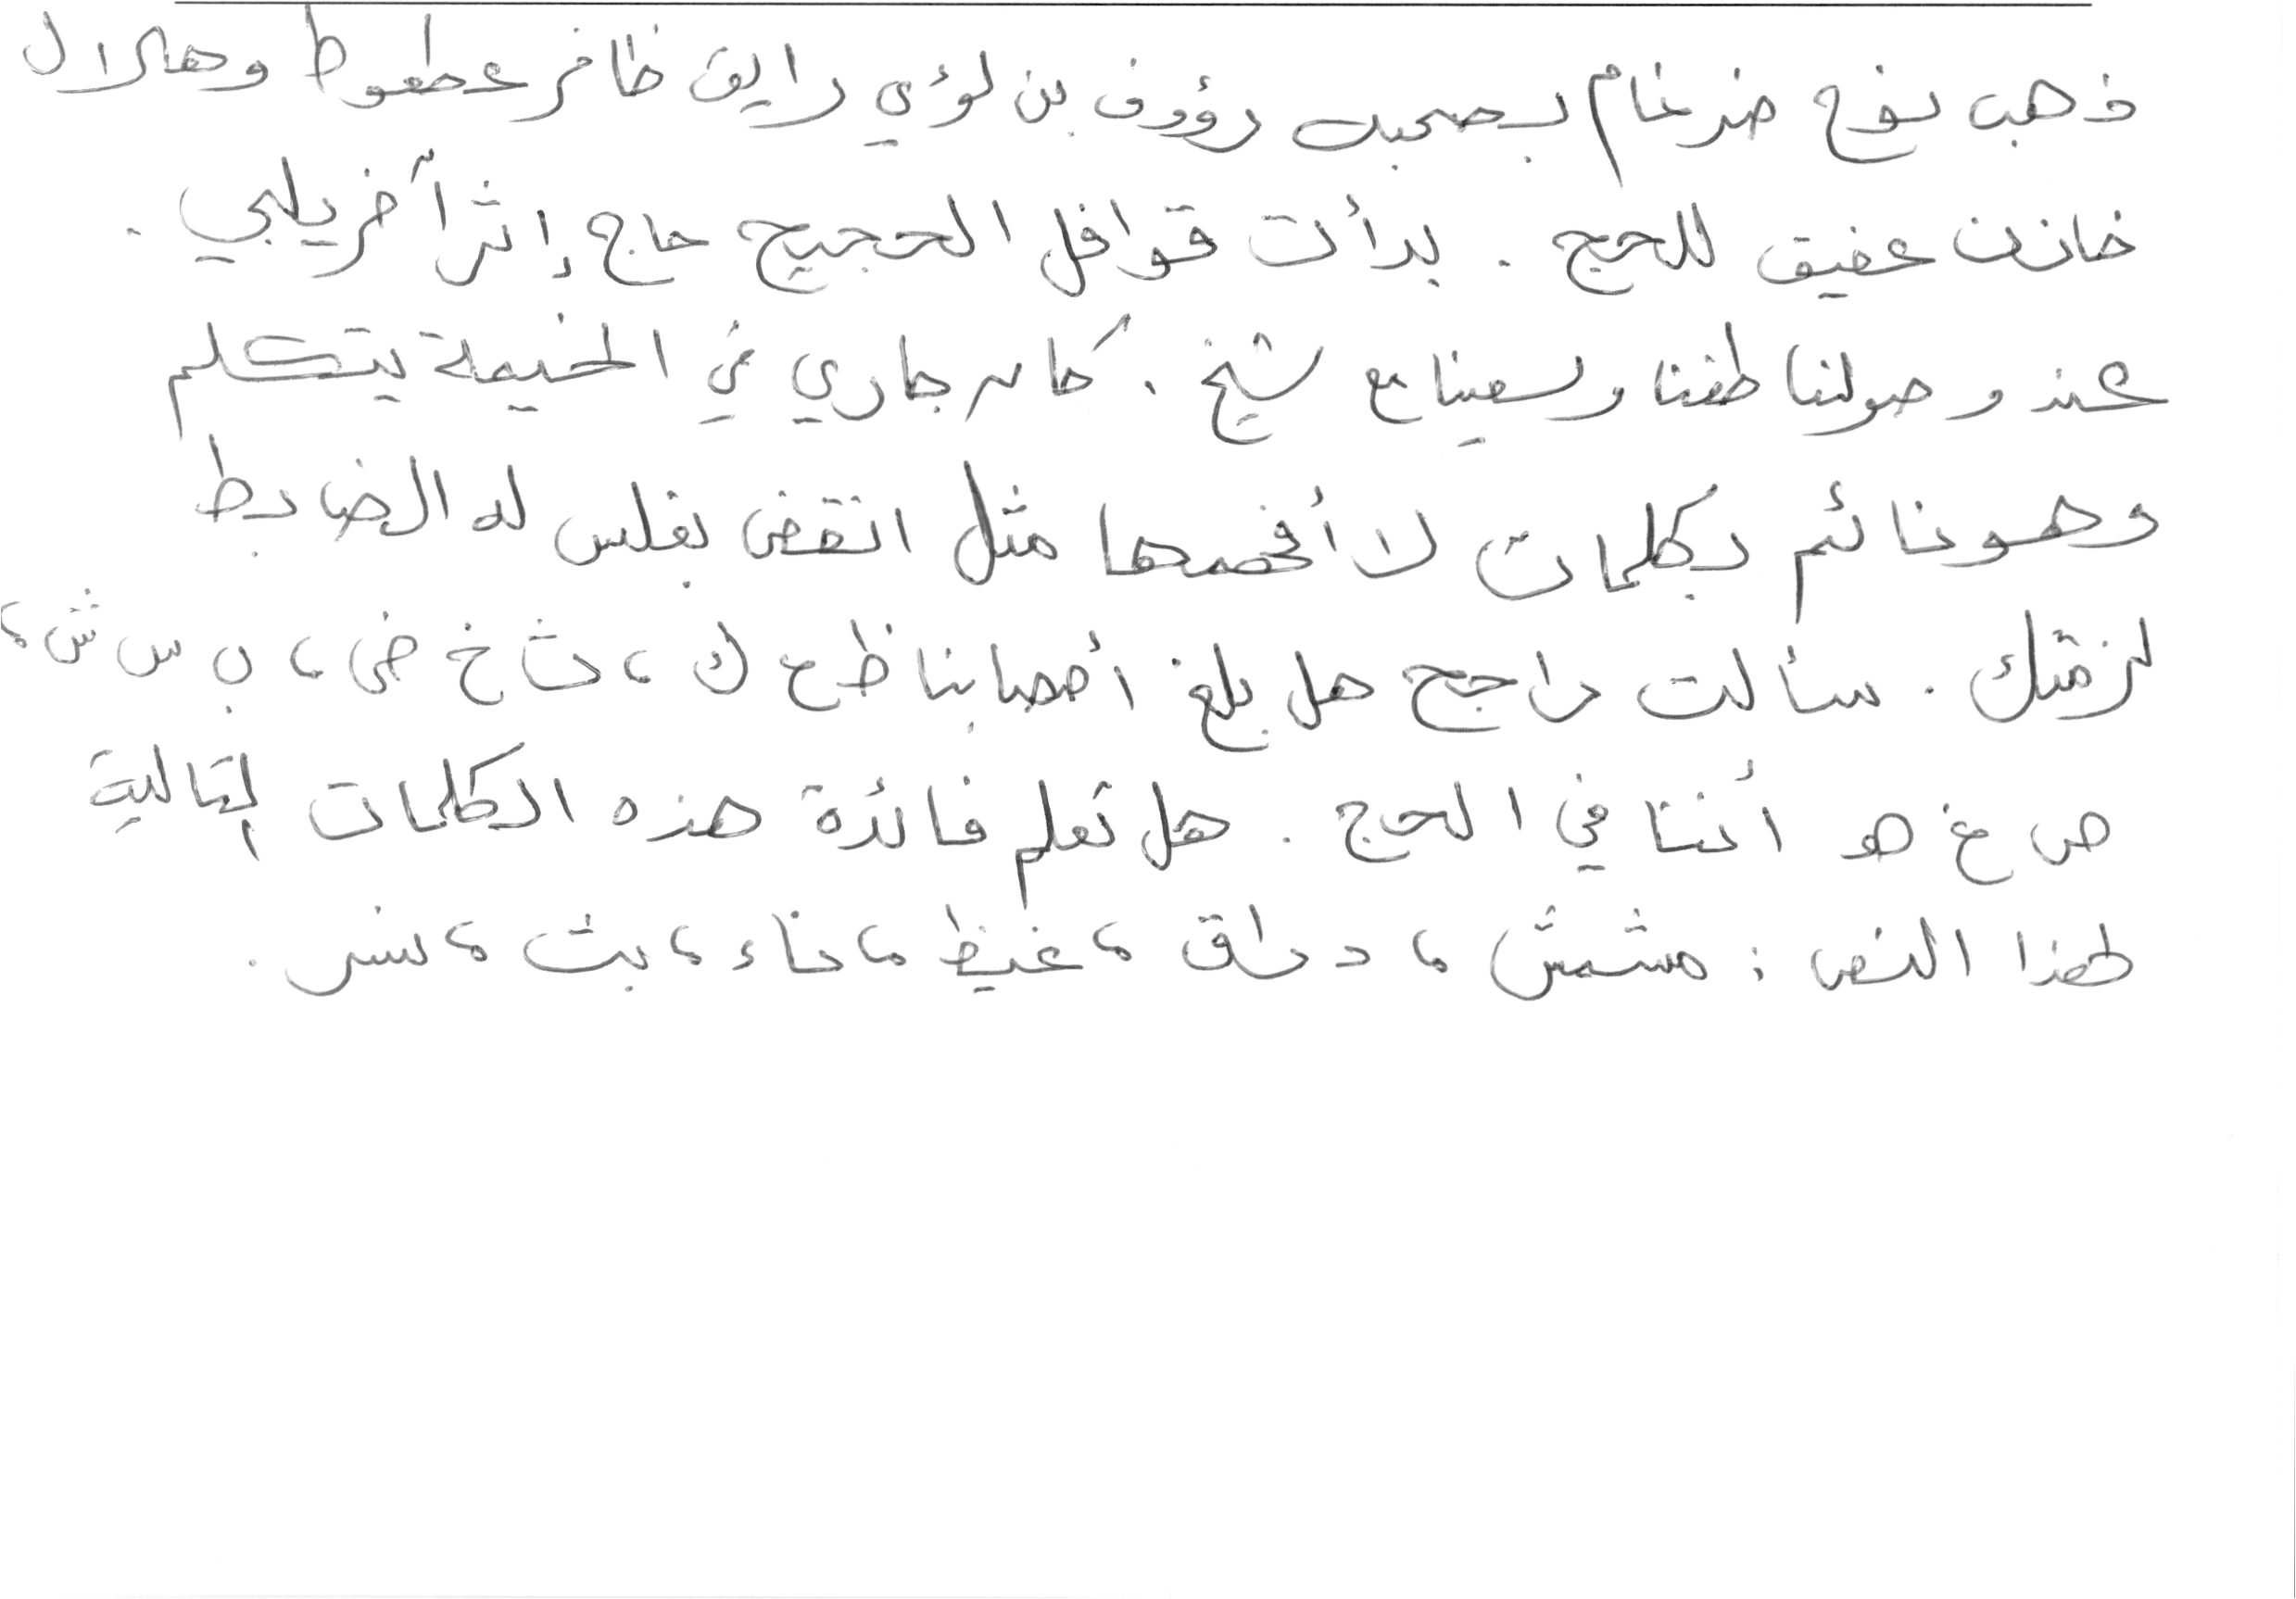 ذهب نوح ضرغام بصحبة رؤوف بن لؤي رايق ظافر عطعوط وهلال
خازن عفيق للحج . بدأت قوافل الحجيج حاج إثر آخر يلبي .
عند وصولنا طفنا وسعينا مع شيخ . كان جاري في الخيمة يتكلم
وهو نائم بكلمات لا أفهمها مثل انقض بغلس له الضابط
لزمتك . سألت راجح هل بلغ أصحابنا ظ ع ك ، ث خ ض ، ب س ش ،
ص غ هو أننا في الحج . هل تعلم فائدة هذه الكلمات التالية
لهذا النص : مشمش ، دراق ، غيظ ، ناء ، بث ، نسر .